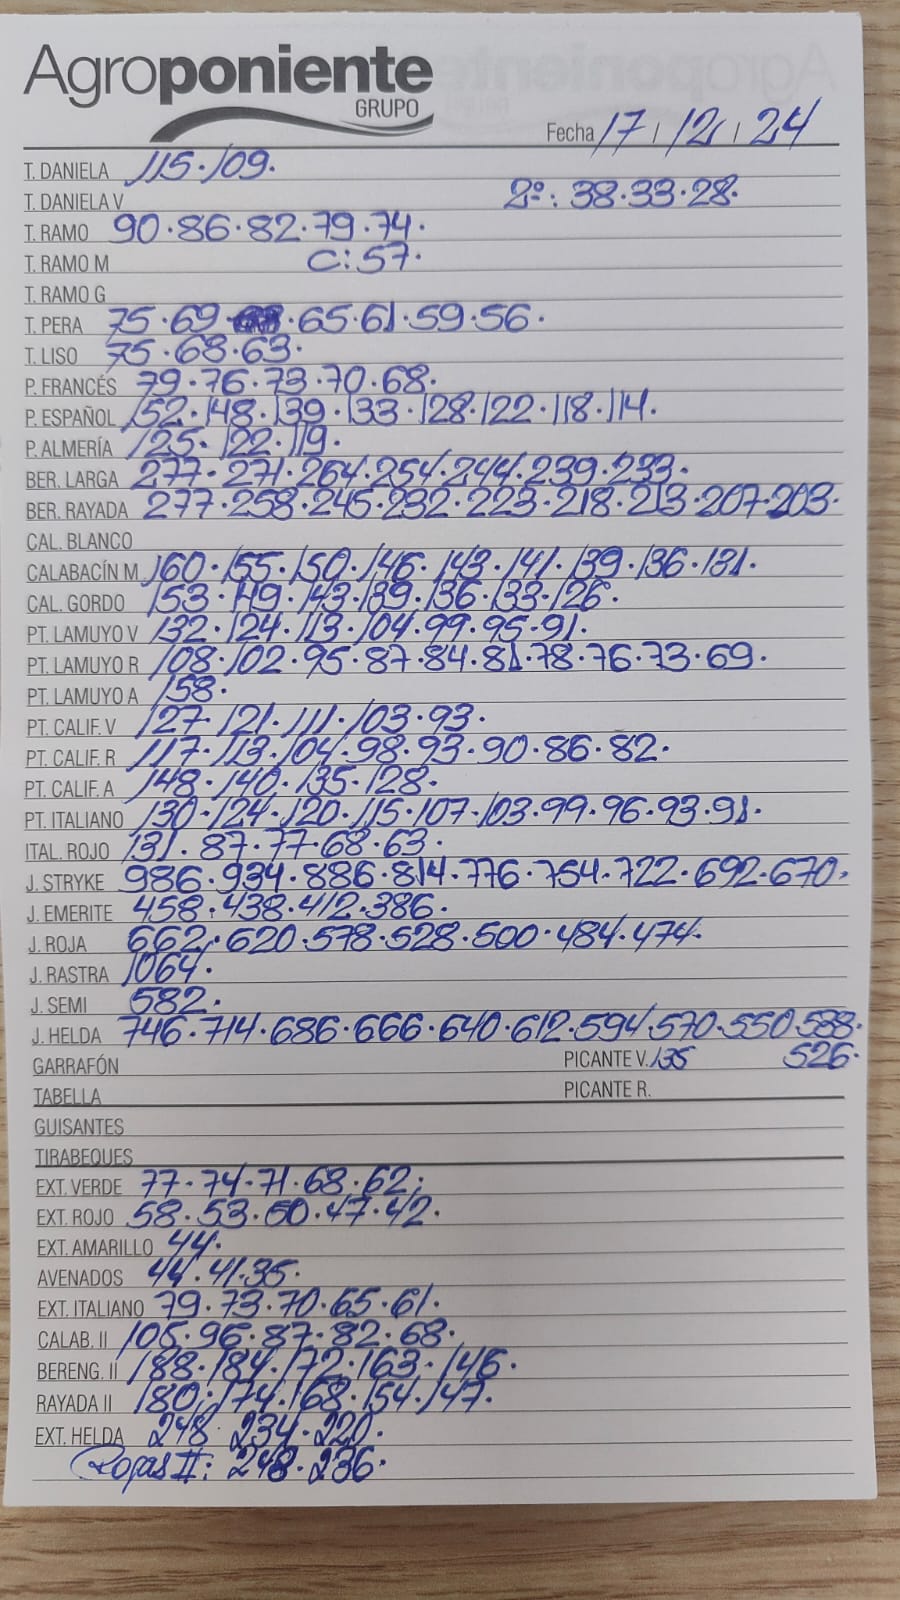 Agroponiente
GRUPO
Fecha 17 / 12 / 24
T. DANIELA 115 · 109 ·
T. DANIELA V 2º: 38 · 33 · 28 ·
T. RAMO 90 · 86 · 82 · 79 · 74 ·
T. RAMO M C: 57 ·
T. RAMO G
T. PERA 75 · 69 · 65 · 61 · 59 · 56 ·
T. LISO 75 · 68 · 63 ·
P. FRANCÉS 79 · 76 · 73 · 70 · 68 ·
P. ESPAÑOL 152 · 148 · 139 · 133 · 128 · 122 · 118 · 114 ·
P. ALMERÍA 125 · 122 · 119 ·
BER. LARGA 277 · 271 · 264 · 254 · 244 · 239 · 233 ·
BER. RAYADA 277 · 258 · 245 · 232 · 223 · 218 · 213 · 207 · 203 ·
CAL. BLANCO
CALABACÍN M 160 · 155 · 150 · 146 · 143 · 141 · 139 · 136 · 131 ·
CAL. GORDO 153 · 149 · 143 · 139 · 136 · 133 · 126 ·
PT. LAMUYO V 132 · 124 · 113 · 104 · 99 · 95 · 91 ·
PT. LAMUYO R 108 · 102 · 95 · 87 · 84 · 81 · 78 · 76 · 73 · 69 ·
PT. LAMUYO A 158 ·
PT. CALIF. V 127 · 121 · 111 · 103 · 93 ·
PT. CALIF. R 117 · 113 · 104 · 98 · 93 · 90 · 86 · 82 ·
PT. CALIF. A 148 · 140 · 135 · 128 ·
PT. ITALIANO 130 · 124 · 120 · 115 · 107 · 103 · 99 · 96 · 93 · 91 ·
ITAL. ROJO 131 · 87 · 77 · 68 · 63 ·
J. STRYKE 986 · 934 · 886 · 814 · 776 · 754 · 722 · 692 · 670 ·
J. EMERITE 458 · 438 · 412 · 386 ·
J. ROJA 662 · 620 · 578 · 528 · 500 · 484 · 474 ·
J. RASTRA 1064 ·
J. SEMI 582 ·
J. HELDA 746 · 714 · 686 · 666 · 640 · 612 · 594 · 570 · 550 ·
GARRAFÓN PICANTE V. 135 526 ·
TABELLA PICANTE R.
GUISANTES
TIRABEQUES
EXT. VERDE 77 · 74 · 71 · 68 · 62 ·
EXT. ROJO 58 · 53 · 50 · 47 · 42 ·
EXT. AMARILLO 44 ·
AVENADOS 44 · 41 · 35 ·
EXT. ITALIANO 79 · 73 · 70 · 65 · 61 ·
CALAB. II 105 · 96 · 87 · 82 · 68 ·
BERENG. II 188 · 184 · 172 · 163 · 146 ·
RAYADA II 180 · 174 · 168 · 154 · 147 ·
EXT. HELDA 248 · 234 · 220 ·
Rojas II: 248 · 236 ·